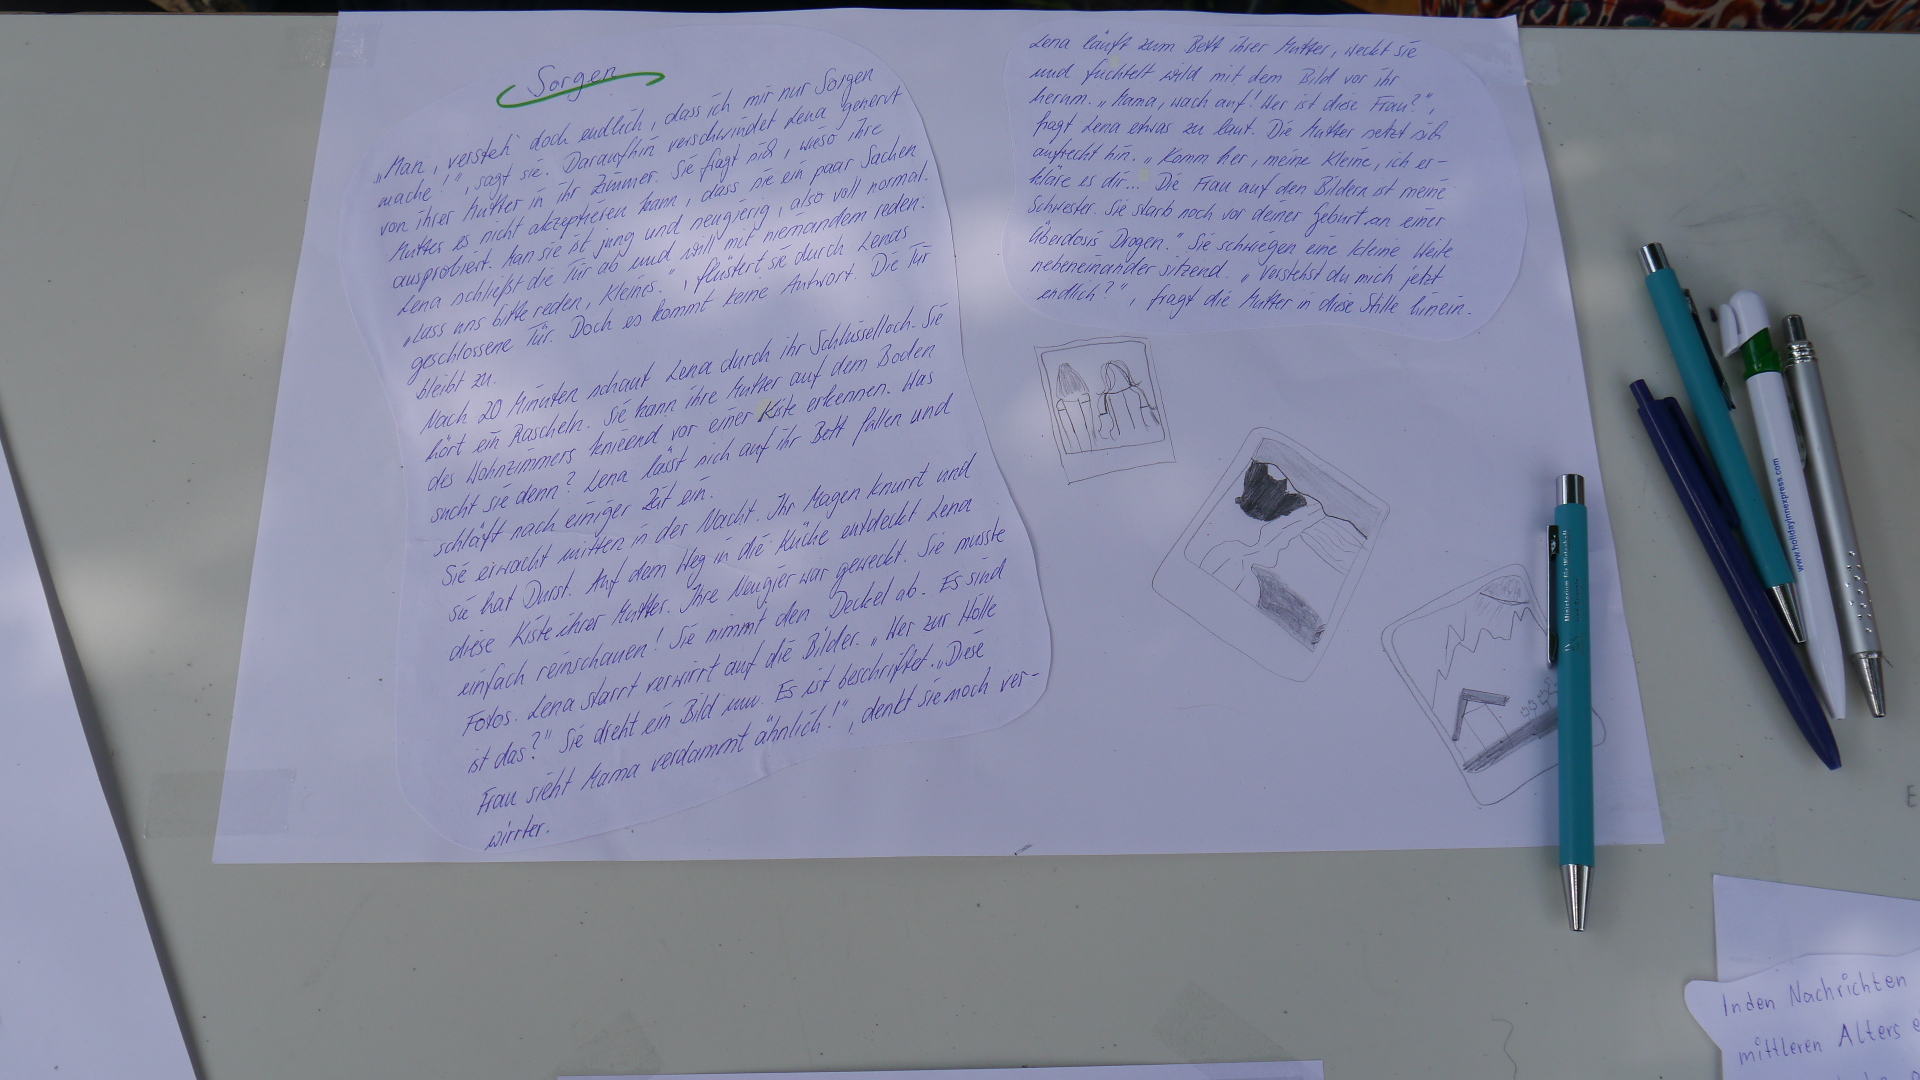 Sorgen
„Man, versteh' doch endlich, dass ich mir nur Sorgen
mache!", sagt sie. Daraufhin verschwindet Lena genervt
von ihrer Mutter in ihr Zimmer. Sie fragt sich, wieso ihre
Mutter es nicht akzeptieren kann, dass sie ein paar Sachen
ausprobiert. Man sie ist jung und neugierig, also voll normal.
Lena schließt die Tür ab und will mit niemandem reden.
„Lass uns bitte reden, Kleines.", flüstert sie durch Lenas
geschlossene Tür. Doch es kommt keine Antwort. Die Tür
bleibt zu.
Nach 20 Minuten schaut Lena durch ihr Schlüsselloch. Sie
hört ein Rascheln. Sie kann ihre Mutter auf dem Boden
des Wohnzimmers knieend vor einer Kiste erkennen. Was
sucht sie denn? Lena lässt sich auf ihr Bett fallen und
schläft nach einiger Zeit ein.
Sie erwacht mitten in der Nacht. Ihr Magen knurrt und
sie hat Durst. Auf dem Weg in die Küche entdeckt Lena
diese Kiste ihrer Mutter. Ihre Neugier war geweckt. Sie musste
einfach reinschauen! Sie nimmt den Deckel ab. Es sind
Fotos. Lena starrt verwirrt auf die Bilder. „Wer zur Hölle
ist das?" Sie dreht ein Bild um. Es ist beschriftet. „Diese
Frau sieht Mama verdammt ähnlich!", denkt sie noch ver-
wirrter.
Lena läuft zum Bett ihrer Mutter, weckt sie
und fuchtelt wild mit dem Bild vor ihr
herum. „Mama, wach auf! Wer ist diese Frau?",
fragt Lena etwas zu laut. Die Mutter setzt sich
aufrecht hin. „Komm her, meine Kleine, ich er-
kläre es dir... Die Frau auf den Bildern ist meine
Schwester. Sie starb noch vor deiner Geburt an einer
Überdosis Drogen." Sie schwiegen eine kleine Weile
nebeneinander sitzend. „Verstehst du mich jetzt
endlich?", fragt die Mutter in diese Stille hinein.
www.holidayinnexpress.com
Ministerium für Wirtschaft
In den Nachrichten
mittleren Alters e